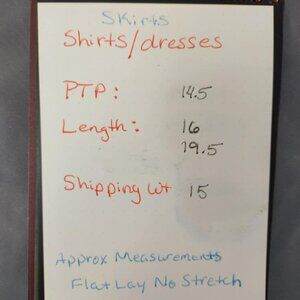 Skirts
Shirts/dresses
PTP: 14.5
Length: 16
19.5
Shipping wt 15
Approx Measurements
Flat Lay No Stretch